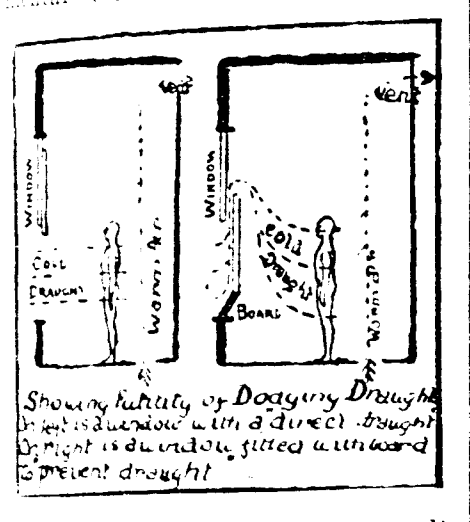 Vent
Vent
WINDOW
WINDOW
COLD
DRAUGHT
Cold
Draught
BOARD
Warm Air
Showing Futility of Dodging Draught
On left is a window with a direct draught
On right is a window fitted with board
To prevent draught